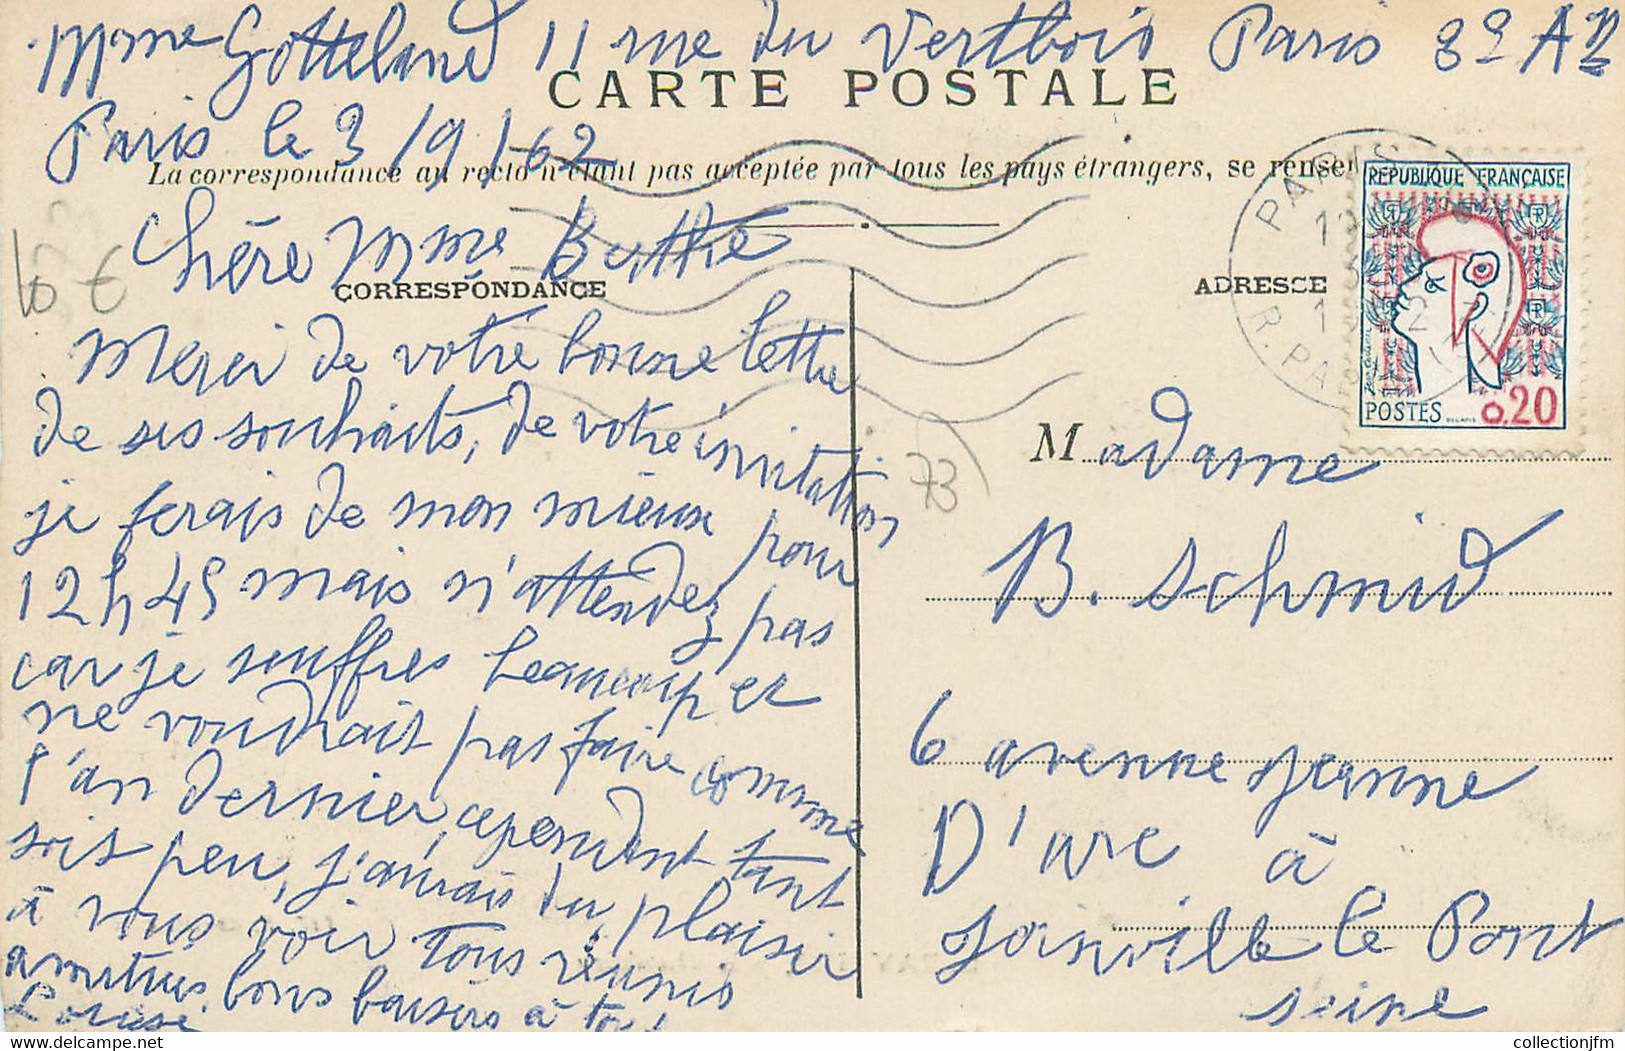 Mme Gotteland 11 rue du Vertbois Paris 3e AR
CARTE POSTALE
Paris le 3/9/62
La correspondance au recto n'étant pas acceptée par tous les pays étrangers, se rensei
Chère Mme Berthe
CORRESPONDANCE
Merci de votre bonne lettre
de ses souhaits, de votre invitation
je ferais de mon mieux pour
12h45 mais n'attendez pas
car je souffres beaucoup et
ne voudrait pas faire comme
l'an dernier, cependant tant
soit peu, j'aurais du plaisir
à vous voir tous réunis
amitiés, bons baisers à tous
Louise
10 €
73
ADRESSE
PARIS
R. PA
REPUBLIQUE FRANÇAISE
RF
POSTES 0.20
Madame
B. Schmid
6 avenue Jeanne
D'arc à
Joinville le Pont
seine
collectionjfm